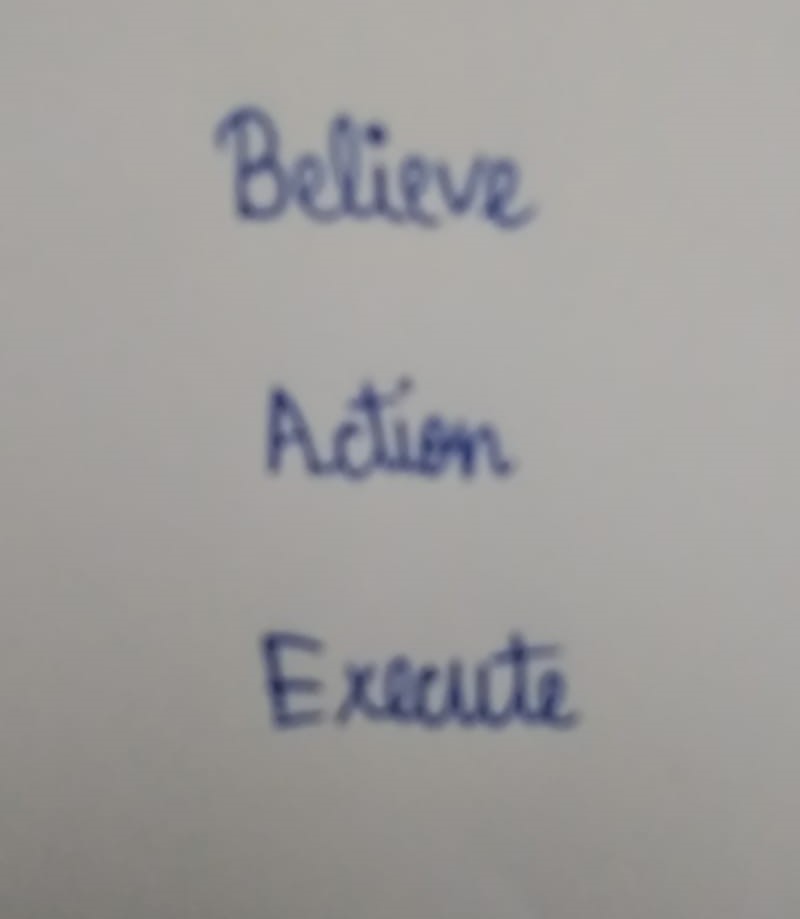 Believe
Action
Execute